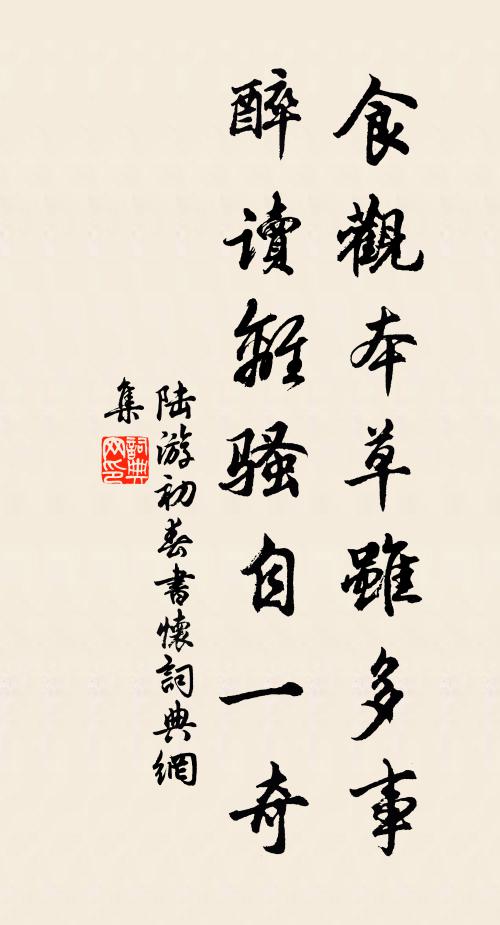 食觀本草雖多事
醉读離骚自一奇
陆游初春書懷詞典網
集
詞典
网印